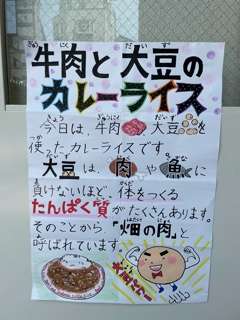 牛肉と大豆の
カレーライス
今日は、牛肉と大豆を
使ったカレーライスです。
大豆は、肉や魚に
負けないほど、体をつくる
たんぱく質がたくさんあります。
そのことから「畑の肉」と
呼ばれています。